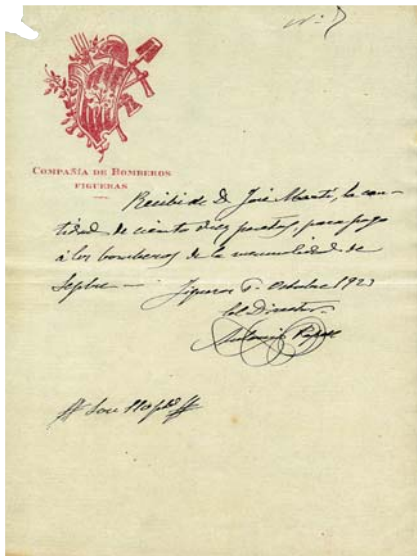 Nº 7
COMPAÑÍA DE BOMBEROS
FIGUERAS
Recibí de D. José Martí, la can-
tidad de ciento diez pesetas, para pago
á los bomberos de la mensualidad de
Sepbre — Figueras 6. Octubre 1923
El Director.
Antonio
# Son 110 pts #